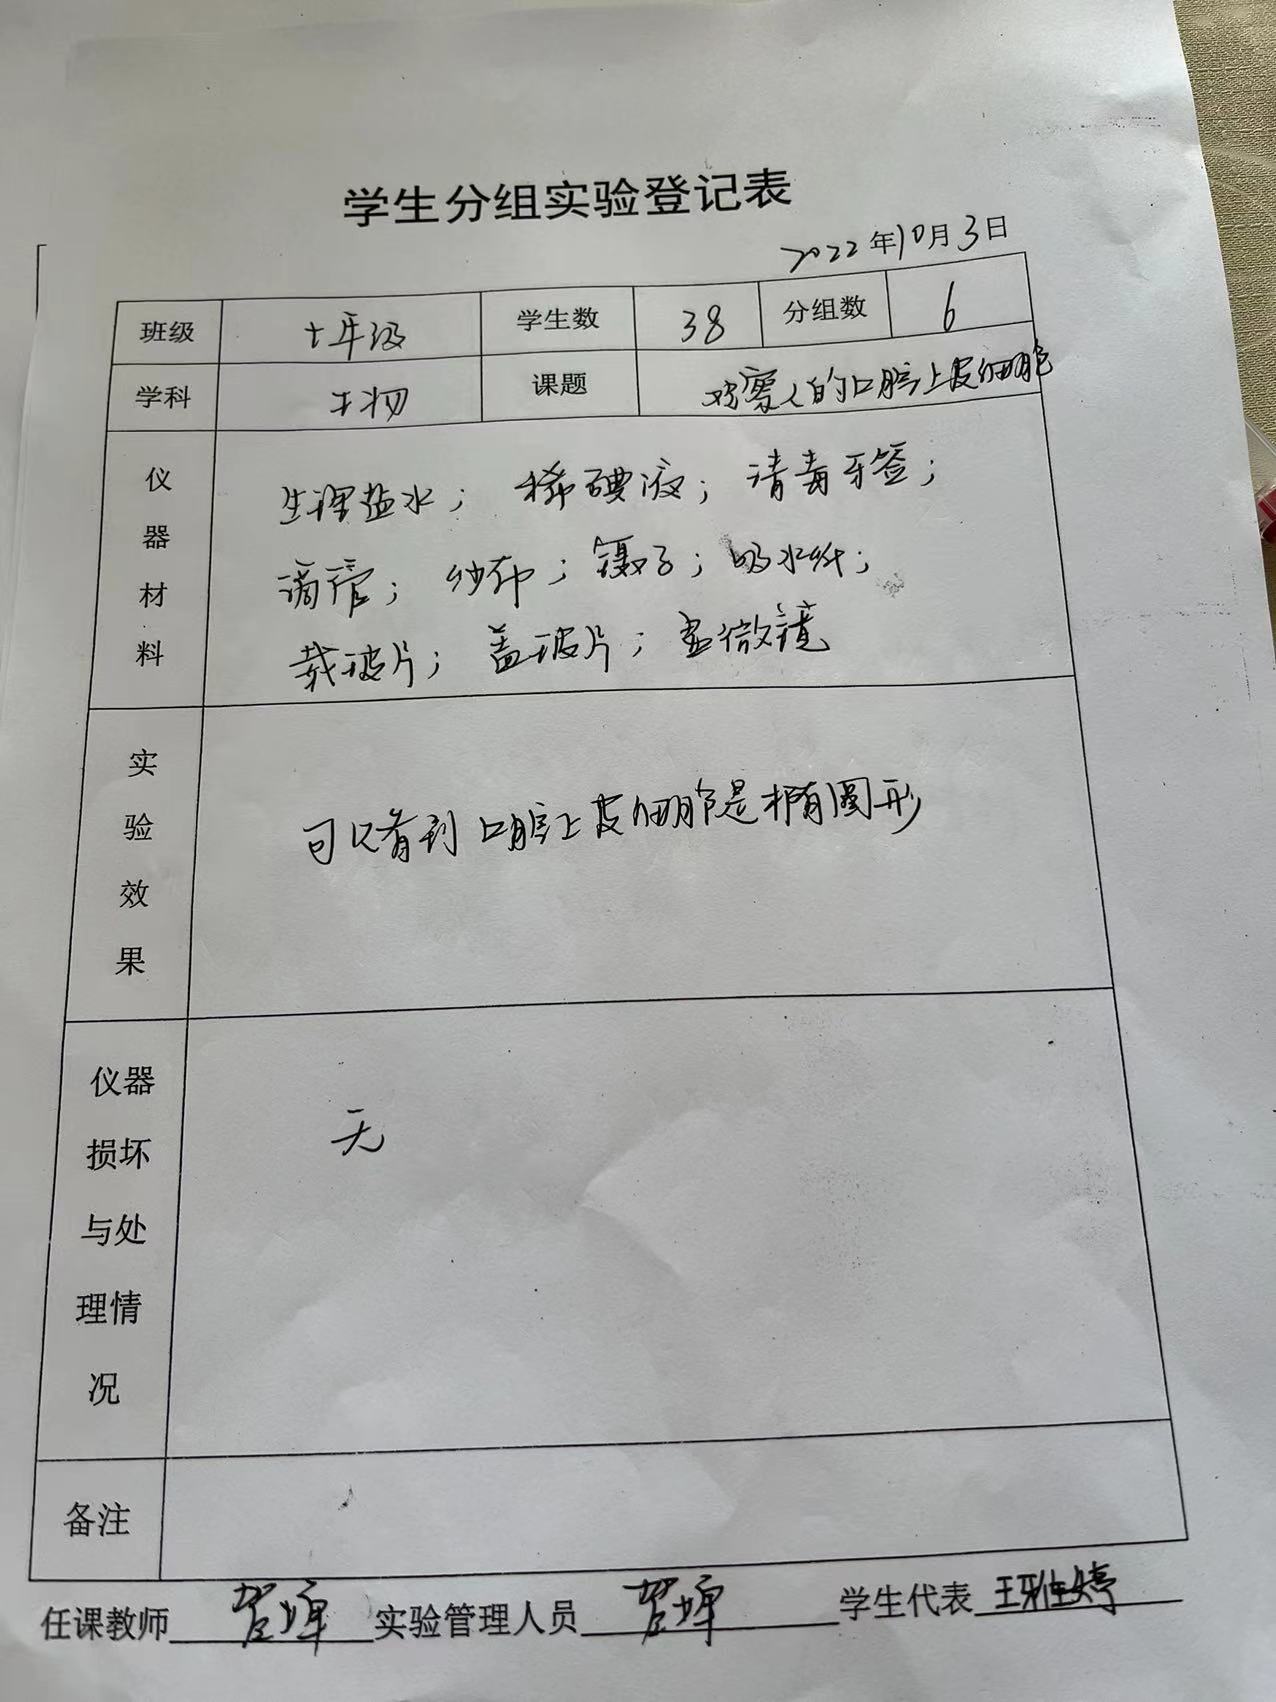 学生分组实验登记表
2022年10月3日
班级 七年级 学生数 38 分组数 6
学科 生物 课题 观察人的口腔上皮细胞
仪器材料
生理盐水；稀碘液；消毒牙签；
滴管；纱布；镊子；吸水纸；
载玻片；盖玻片；显微镜
实验效果
可以看到口腔上皮细胞是椭圆形
仪器
损坏
与处
理情
况
无
备注
任课教师 实验管理人员 学生代表 王雅婷